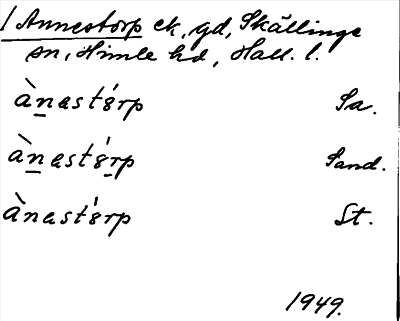 1 Annestorp ek, gd, Skällinge
sn, Himle hd, Hall. l.
ànastórp Sa.
ànastórp Sand.
ànastórp St.
1949.